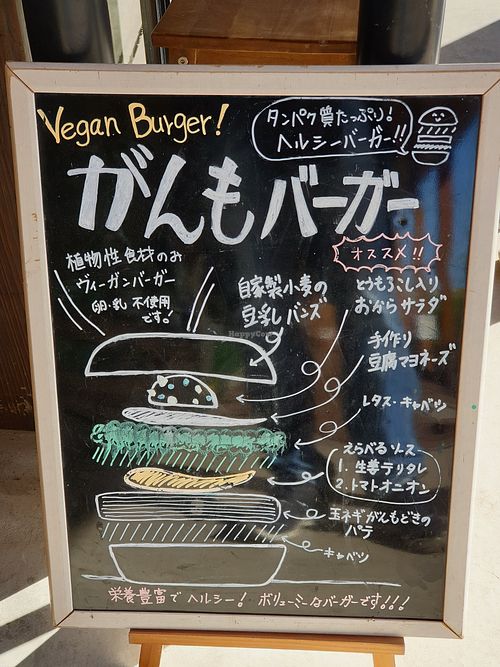 Vegan Burger!
タンパク質たっぷり!
ヘルシーバーガー!!
がんもバーガー
オススメ!!
植物性食材のみ
ヴィーガンバーガー
卵・乳 不使用
です!
自家製小麦の
豆乳バンズ
とうもろこし入り
おからサラダ
手作り
豆腐マヨネーズ
レタス・キャベツ
えらべるソース
1. 生姜テリタレ
2. トマトオニオン
玉ネギがんもどきの
パテ
キャベツ
栄養豊富でヘルシー! ボリューミーなバーガーです!!!
HappyCow